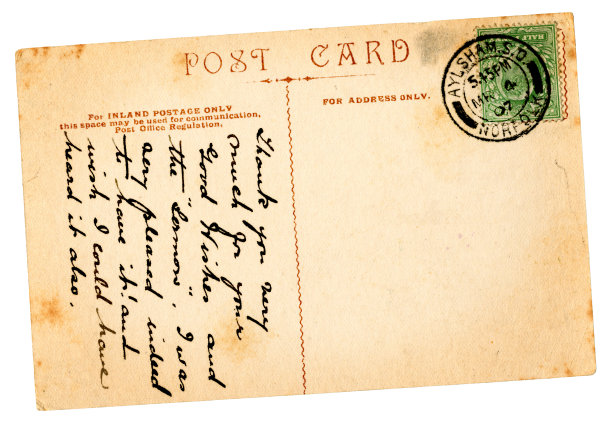 POST CARD
For INLAND POSTAGE ONLY
this space may be used for communication.
Post Office Regulation.
FOR ADDRESS ONLY.
AYLSHAM S.O.
5.15PM
4
07
NORFOLK
HALF
Thank you very
much for your
Good Wishes and
the "Sermons". I was
very pleased indeed
to have it! and
wish I could have
heard it also.